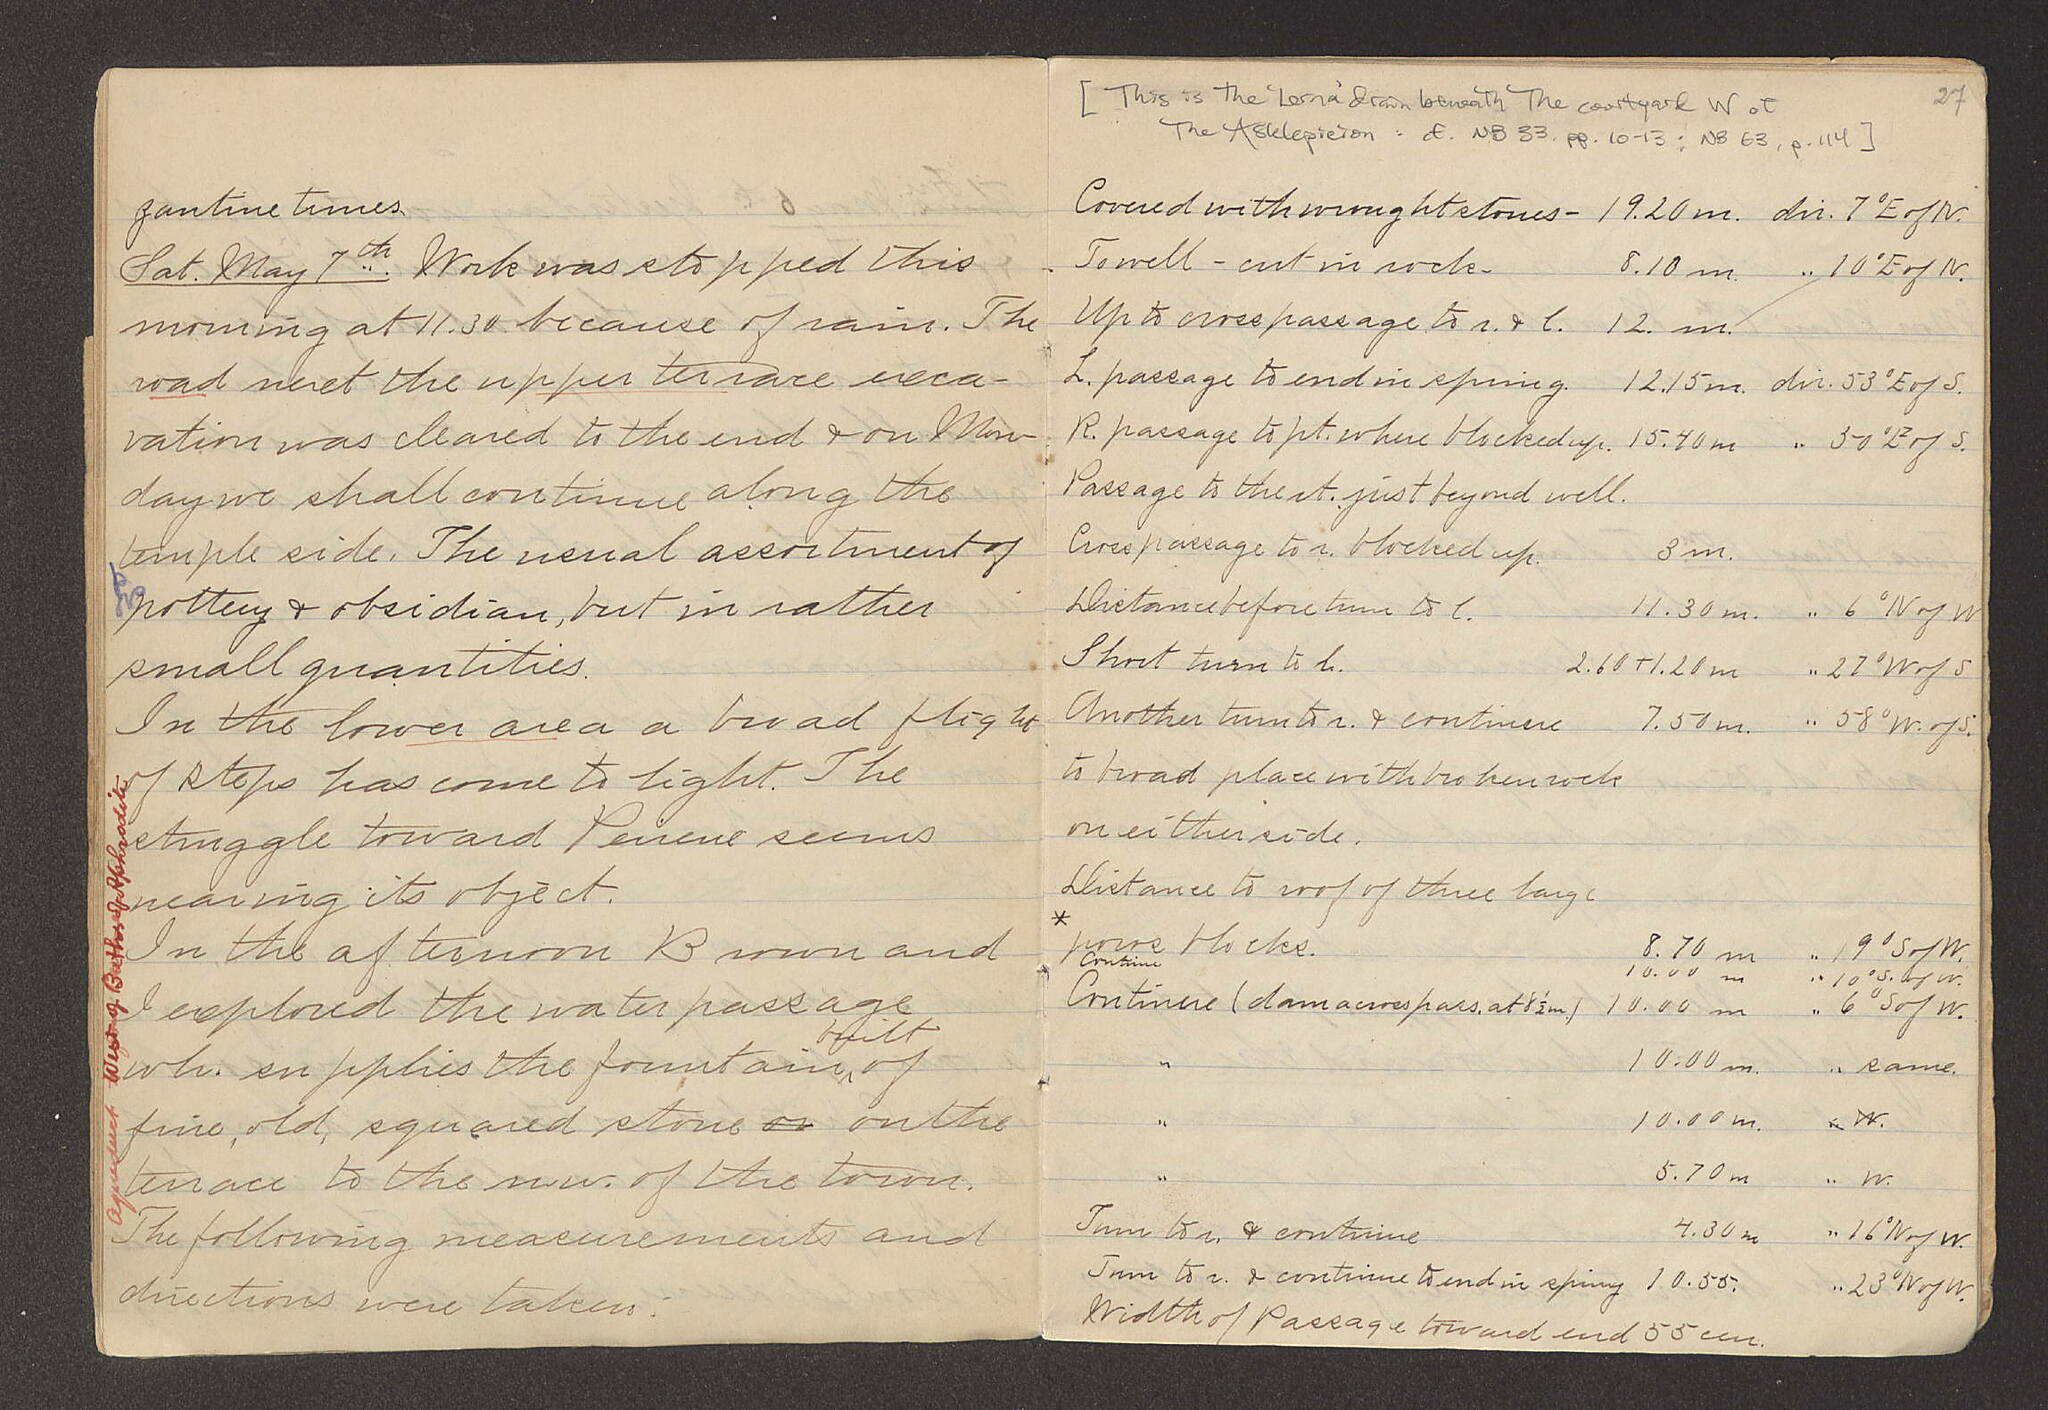 zantine times.
Sat. May 7th. Work was stopped this
morning at 11.30 because of rain. The
road next the upper terrace exca-
vation was cleared to the end & on Mon-
day we shall continue along the
temple side. The usual assortment of
pottery & obsidian, but in rather
small quantities.
In the lower area a broad flight
of steps has come to light. The
struggle toward Peirene seems
nearing its object.
In the afternoon Brown and
I explored the water passage
wh. supplies the fountain, built of
fine, old, squared stone or on the
terrace to the n.w. of the town.
The following measurements and
directions were taken:
Aqueduct West of Baths of Aphrodite
27
[This is the 'Lerna' drain beneath the courtyard W of
the Asklepieion: cf. NB 33, pp. 10-13; NB 63, p. 114]
Covered with wrought stones - 19.20 m. dir. 7° E of N.
To well - cut in rock - 8.10 m. " 10° E of N.
Up to cross passage to r. & l. 12. m.
L. passage to end in spring. 12.15 m. dir. 53° E of S.
R. passage to pt. where blocked up. 15.40 m " 30° E of S.
Passage to the rt. just beyond well.
Cross passage to r. blocked up. 3 m.
Distance before turn to l. 11.30 m. " 6° N of W
Short turn to l. 2.60 + 1.20 m " 27° W of S
Another turn to r. & continue 7.50 m. " 58° W. of S.
to broad place with broken rock
on either side.
Distance to roof of three large
* poros blocks. 8.70 m " 19° S of W.
Continue 10.00 m " 10° S. of W.
Continue (dam across pass. at 8½ m.) 10.00 m " 6° S of W.
" 10.00 m. " same.
" 10.00 m. " W.
" 5.70 m " W.
Turn to r. & continue 4.30 m " 16° N of W.
Turn to r. & continue to end in spring 10.55. " 23° N of W.
Width of Passage toward end 55 cm.